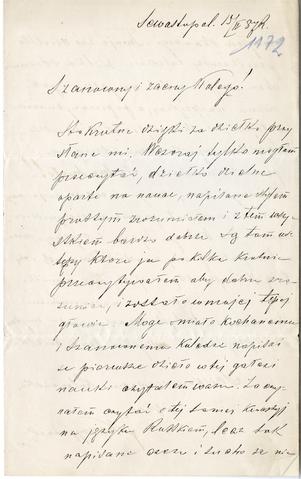 Sewastopol. 15/II 87 R.
1172
Szanowny i zacny Kolego!
Stokrotne dzięki za dziełko przy
słane mi. Wczoraj tylko mogłem
przeczytać, dziełko dzielne
oparte na nauce, napisane stylem
prostym zrozumiałem i z tem wszy
stkiem bardzo dobrze. Są tam ust
ępy które ja po kilka krotnie
przeczytywałem aby dobrze zro
zumieć, i zostało w mojej tępej
głowie. Mogę śmiało kochanemu
i Szanownemu Koledze napisać
że pierwsze dzieło w tej gałęzi
nauki czytałem wasze. Zaczy
nałem czytać o tej samej kwestyi
na języku Ruskiem, lecz tak
napisane i sucho że nie